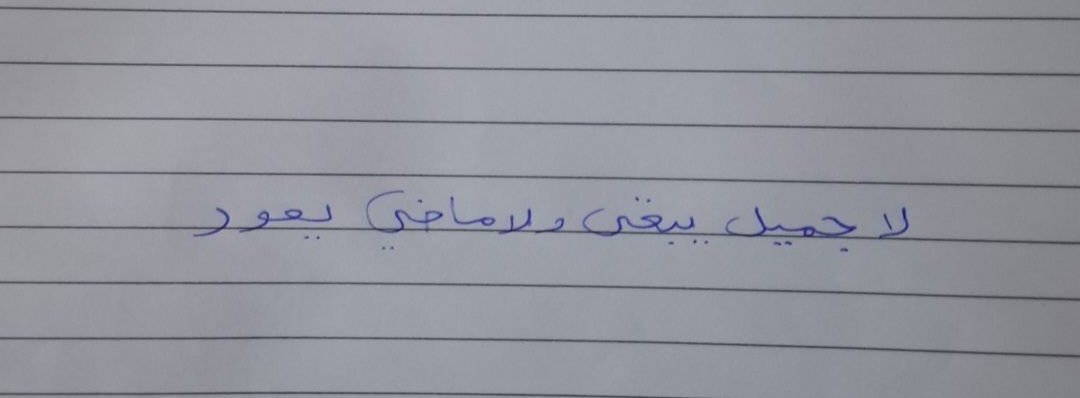 لا جميل يبقى ولا ماضي يعود